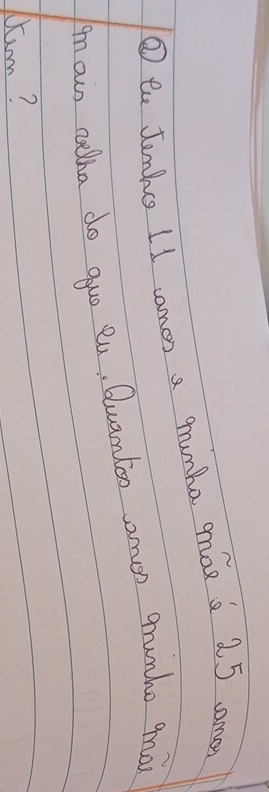 ② Eu tenho 11 anos e minha mãe é 25 anos
mais velha do que eu. Quantos anos minha mãe
tem?